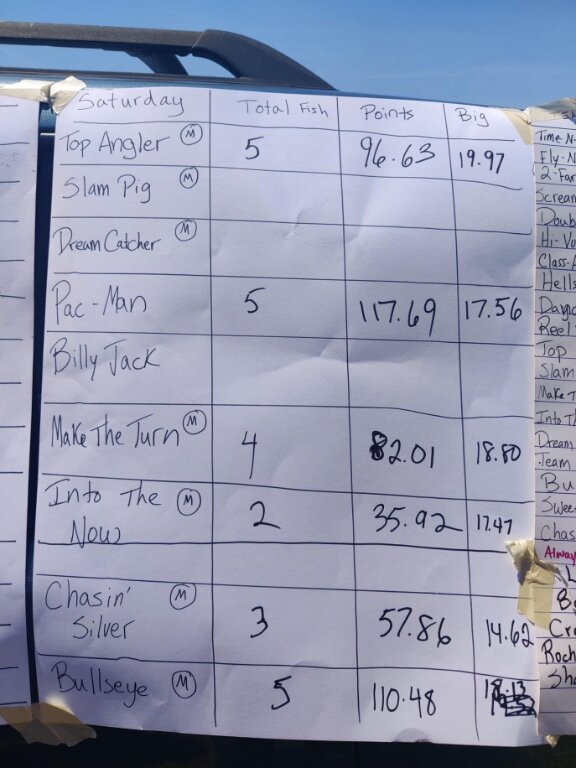 Saturday Total Fish Points Big
Top Angler M 5 96.63 19.97
Slam Pig M
Dream Catcher M
Pac-Man 5 117.69 17.56
Billy Jack
Make The Turn M 4 82.01 18.80
Into The M 2 35.92 17.47
Now
Chasin' M 3 57.86 14.62
Silver
Bullseye M 5 110.48
Time-N-
Fly-N
2-Far
Scream
Doub
Hi-Vo
Class-A
Hells
Reel
Top
Slam
Make T
Into Th
Dream
Team
Bu
Swee
Chas
Alway
L
Cr
Roch
Sha